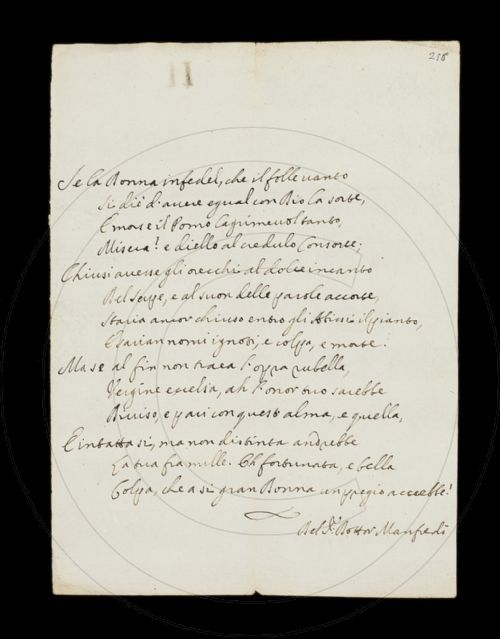 216
Se la Donna infedel, che il folle vanto
Si diè d'avere egual con Dio la sorte,
E morse il Pomo lagrimevol tanto,
Misera! e diello al credulo Consorte;
Chiusi avesse gli orecchi al dolce incanto
Del serpe, e al suon delle parole accorte,
Staria ancor chiuso entro gli Abissi il pianto,
E sarian nomi ignoti, e colpa, e morte.
Ma se al fin non traea l'opra rubella,
Vergine excelsa, ah l'onor tuo sarebbe
Diviso, e pari con quest'alma, e quella,
E intatta sì, ma non distinta andrebbe
La tua fra mille. Oh fortunata, e bella
Colpa, che a sì gran Donna un pregio accrebbe!
Del Sr. Dottor Manfredi